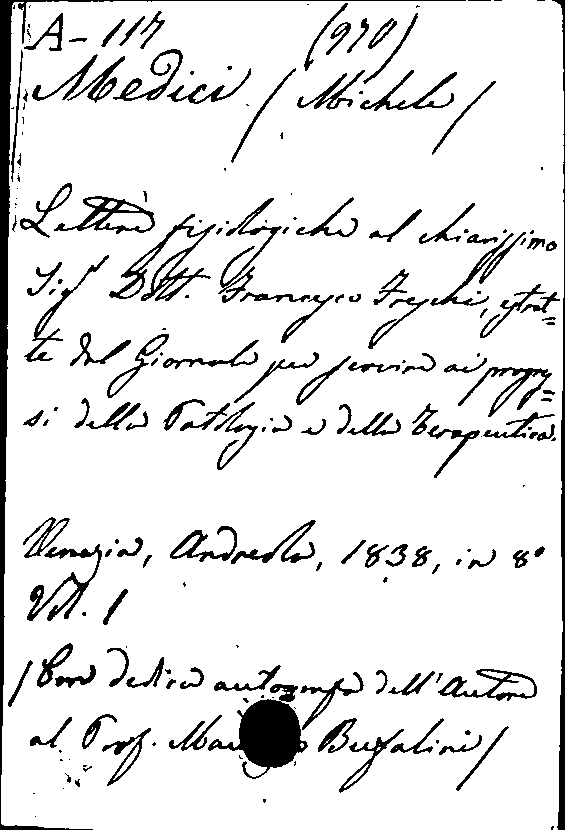 A-117 (970)
Medici / Michele /
Lettere fisiologiche al chiarissimo
Sigr Dott. Francesco Freschi, estrat=
te dal Giornale per servire ai progres=
si della Patologia e della Terapeutica.
Venezia, Andreola, 1838, in 8°
Vol. 1
/ Con dedica autografa dell'Autore
al Prof. Bufalini /